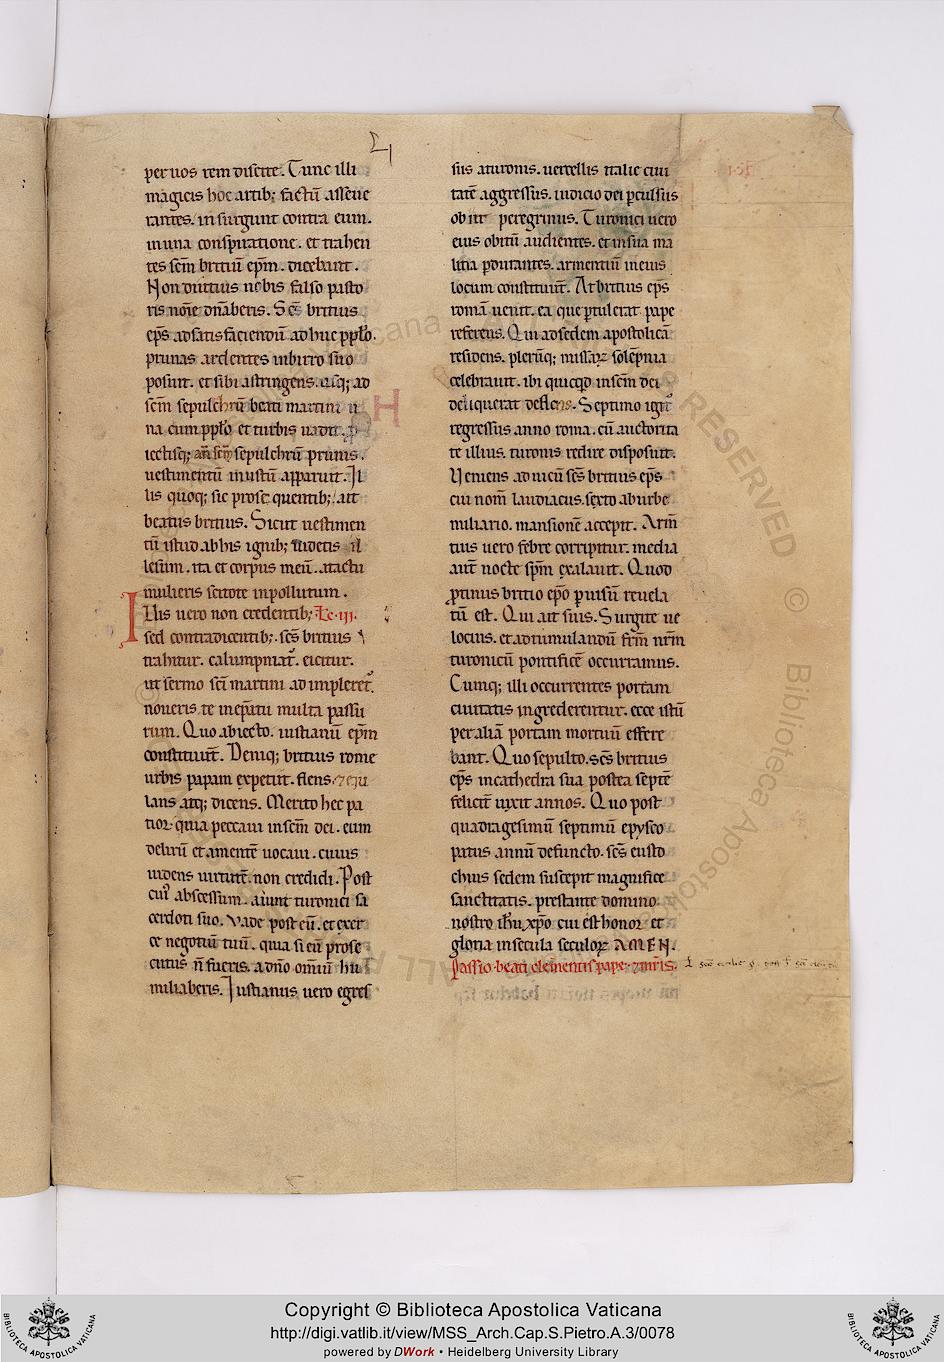 per uos rem discite. Tunc illi
magicis hoc artib; factū asseue
rantes. insurgunt contra eum.
in una conspiratione. et trahen
tes scm̄ britiū ep̄m. dicebant.
Non diutius nobis falso pasto
ris nōie dn̄aberis. Sc̄s britius
ep̄s ad satisfaciendū adhuc pp̄lo.
prunas ardentes in birro suo
posuit. et sibi astringens. usq; ad
scm̄ sepulchrū beati martini u
na cum pp̄lo et turbis uadit. p
iectisq; an̄ scm̄ sepulchrū prunis.
uestimentū inustū apparuit. Il
lis quoq; sic prose quentib; ait
beatus britius. Sicut uestimen
tū istud ab his ignib; uidetis il
lesum. ita et corpus meū. a tactu
mulieris scitote inpollutum.
Illis uero non credentib; Lc. iii.
sed contradicentib; sc̄s britius
trahitur. calumpniat᷑. eicitur.
ut sermo sc̄i martini adimpleret᷑.
noueris te in ep̄atu multa passu
rum. Quo abiecto. iustianū ep̄m
constituūt. Deniq; britius rome
urbis papam expetiit. flens 7 eiu
lans atq; dicens. Merito hec pa
tior. quia peccaui in scm̄ dei. eum
delirū et amentē uocaui. cuius
uidens uirtutē. non credidi. Post
cui᷒ abscessum. aiunt turonici sa
cerdoti suo. vade post eū. et exer
ce negotiū tuū. quia si eū prose
cutus n̄ fueris. a dn̄o omiū hu
miliaberis. Iustianus uero egres
sus a turonis. uercellis italie ciui
tatē aggressus. iudicio dei p̄cussus
obiit peregrinus. Turonici uero
eius obitū audientes. et in sua ma
litia p̄durantes. armentiū in eius
locum constituūt. At britius ep̄s
romā uenit. ea que p̄tulerat pape
referens. Qui ad sedem apostolicā
residens. plerūq; missarꝝ solēpnia
celebrauit. ibi quicqd in scm̄ dei
deliquerat deflens. Septimo igit᷑
regressus anno roma. cū auctorita
te illius. turonis redire disposuit.
Veniens ad uicū sc̄s britius ep̄s
cui nom̄ laudiacus. sexto ab urbe
miliario. mansionē accepit. Arm̄
tius uero febre corripitur. media
aut̄ nocte sp̄m exalauit. Quod
protinus britio ep̄o p uisū reuela
tū est. Qui ait suis. Surgite ue
locius. et ad tumulandū frm̄ nrm̄
turonicū pontificē occurramus.
Cumq; illi occurrentes portam
ciuitatis ingrederentur. ecce istū
per aliā portam mortuū effere
bant. Quo sepulto. sc̄s britius
ep̄s in cathedra sua postea septē
felicit̄ uixit annos. Quo post
quadragesimū septimū epysco
patus annū defuncto. sc̄s eusto
chius sedem suscepit magnifice
sanctitatis. prestante domino
nostro ih̄u xp̄o cui est honor et
gloria in secula seculorꝝ AMEN.
Passio beati clementis pape 7 mr̄is.
Copyright © Biblioteca Apostolica Vaticana
http://digi.vatlib.it/view/MSS_Arch.Cap.S.Pietro.A.3/0078
powered by DWork • Heidelberg University Library
BIBLIOTECA APOSTOLICA VATICANA
BIBLIOTECA APOSTOLICA VATICANA